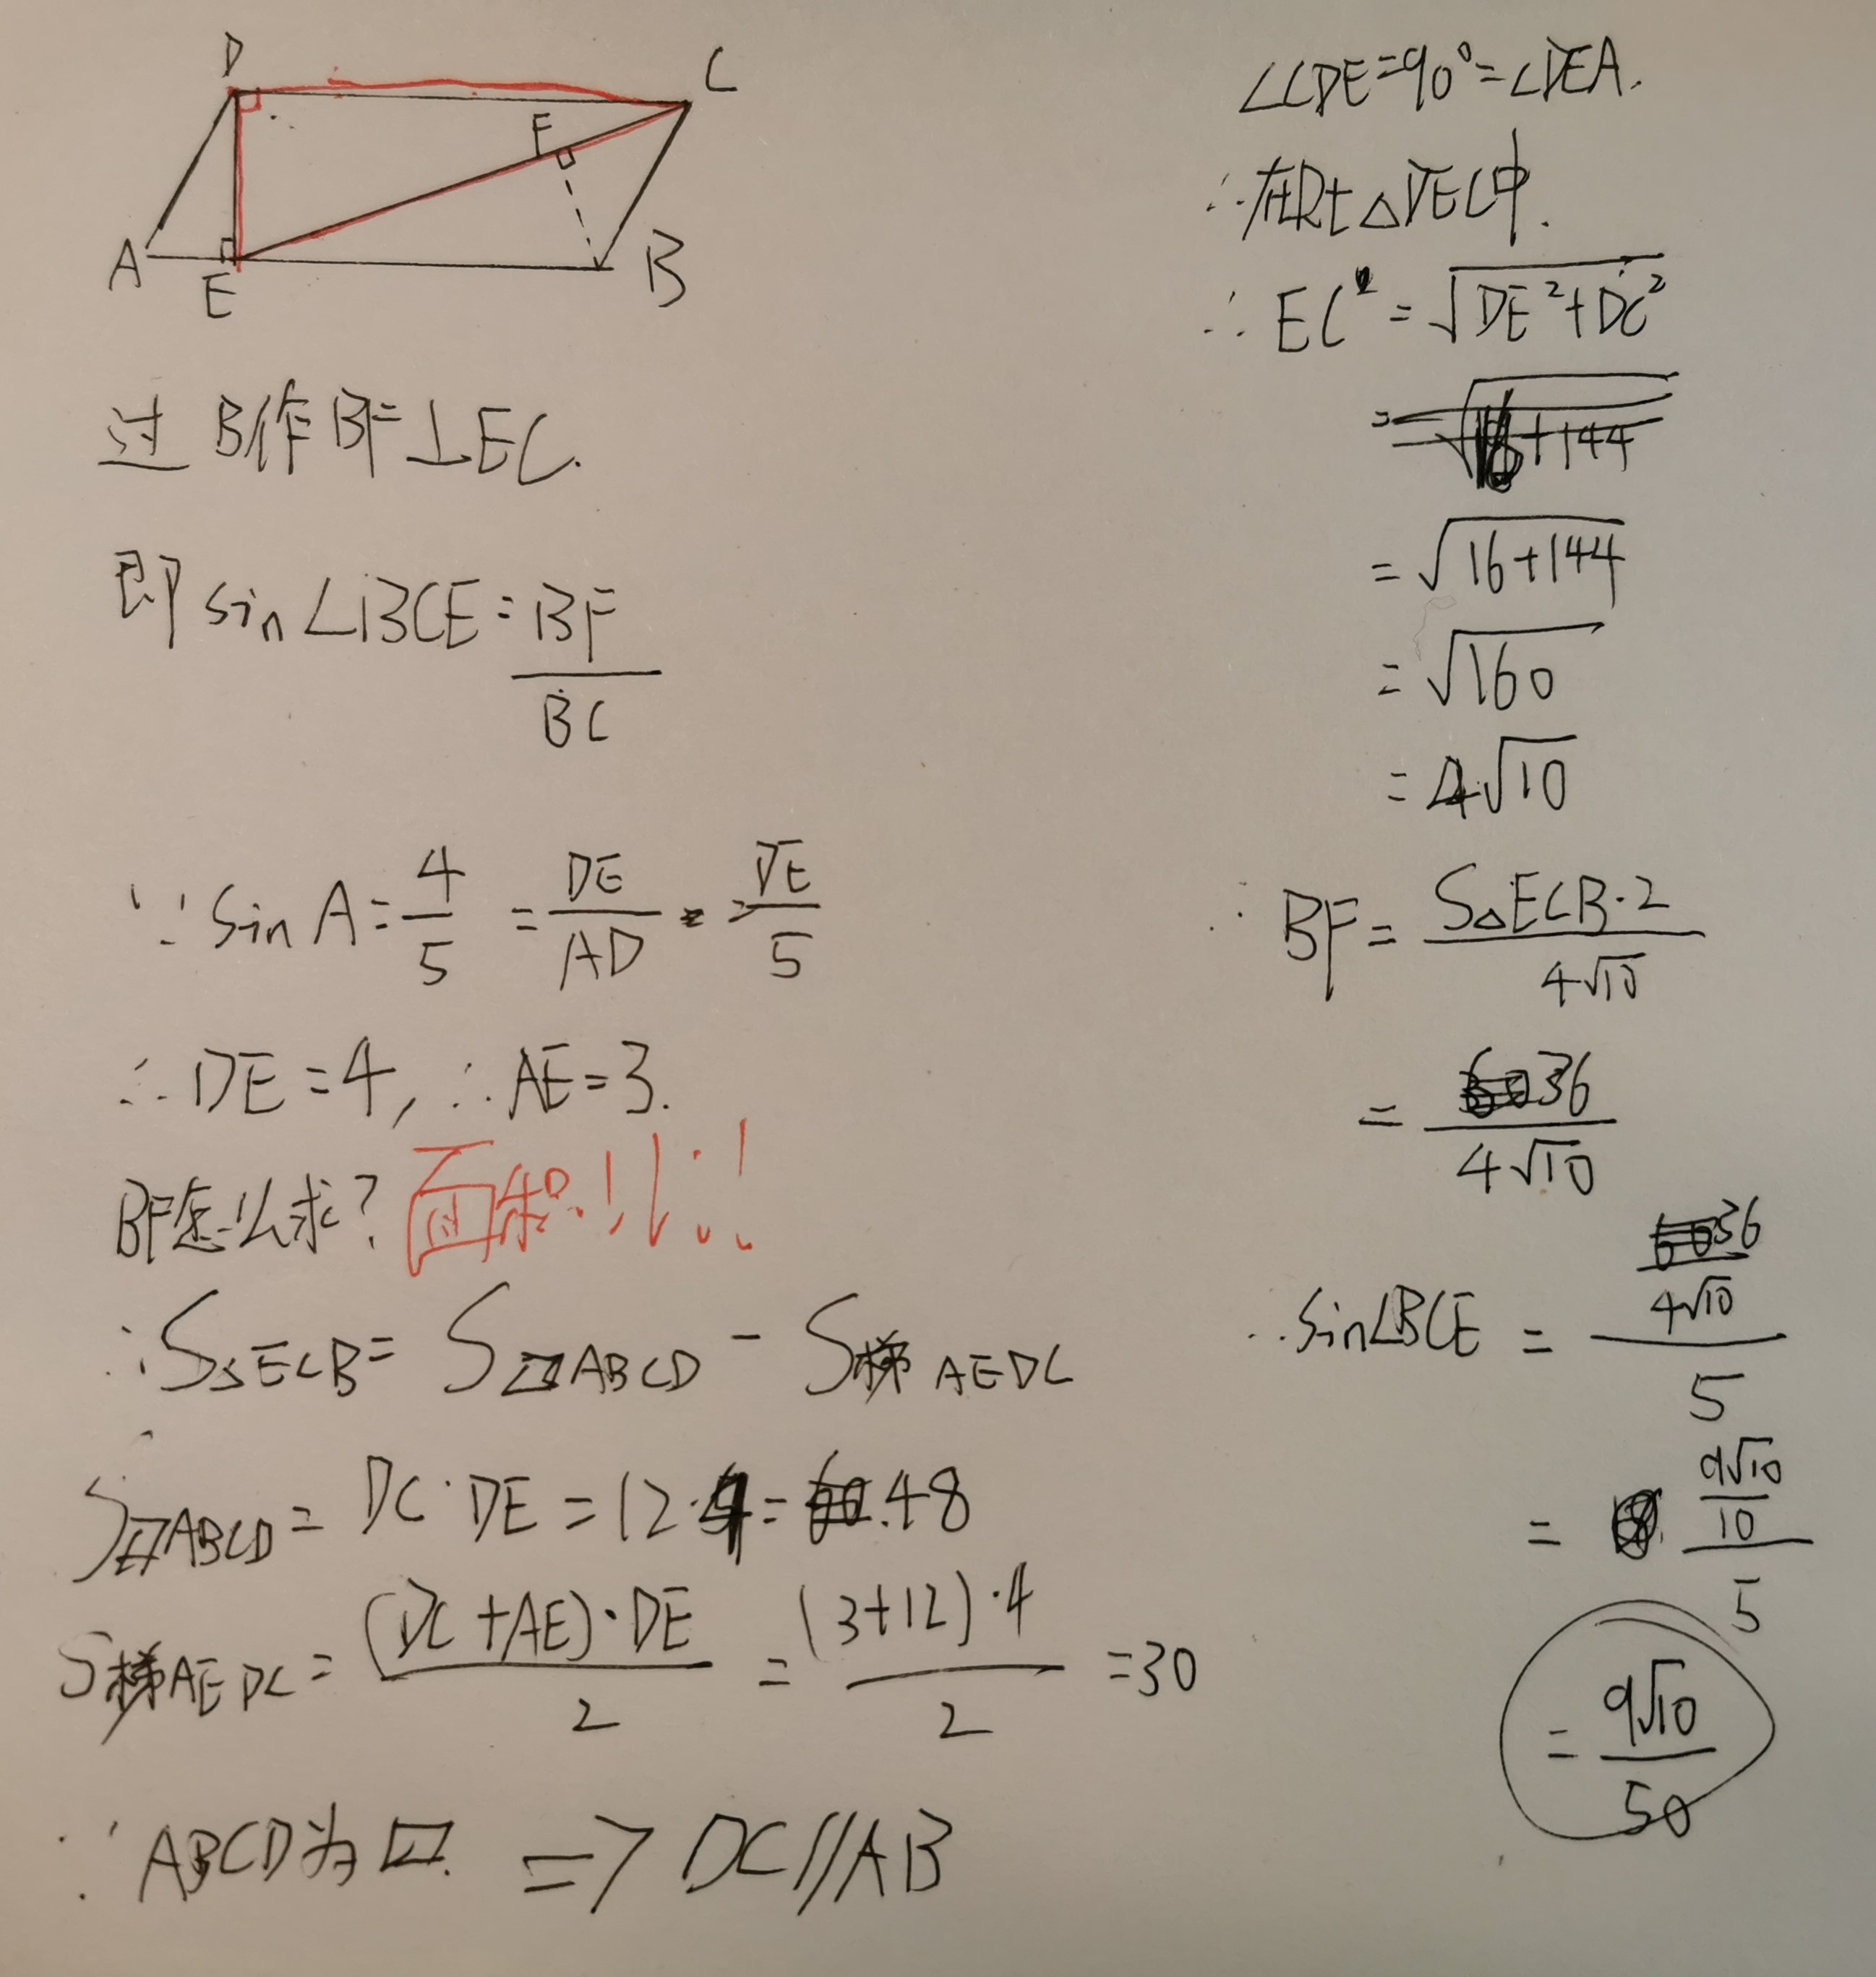 D
C
F
A
E
B
过B作BF⊥EC.
即 sin∠BCE=BF/BC
∵ sin A=4/5=DE/AD=DE/5
∴DE=4, ∴AE=3.
BF怎么求? 面积!!!
∴S△ECB=S▱ABCD-S梯AEDC
S▱ABCD=DC·DE=12·4=48
S梯AEDC=(DC+AE)·DE/2=(3+12)·4/2=30
∵ABCD为▱. => DC//AB
∠CDE=90°=∠DEA.
∴在Rt△DEC中.
∴EC=√(DE²+DC²)
=√(16+144)
=√(16+144)
=√160
=4√10
∴BF=S△ECB·2/4√10
=36/4√10
∴sin∠BCE=(36/4√10)/5
=(9√10/10)/5
=9√10/50